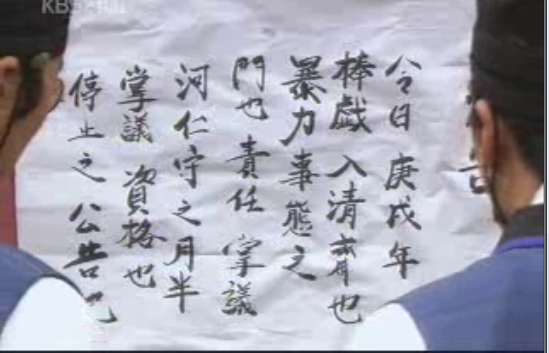 KBS
今日 庚戌年
棒戱 入清齋也
暴力事態之
門也 責任 掌議
河仁守之月半
掌議 資格也
停止之 公告